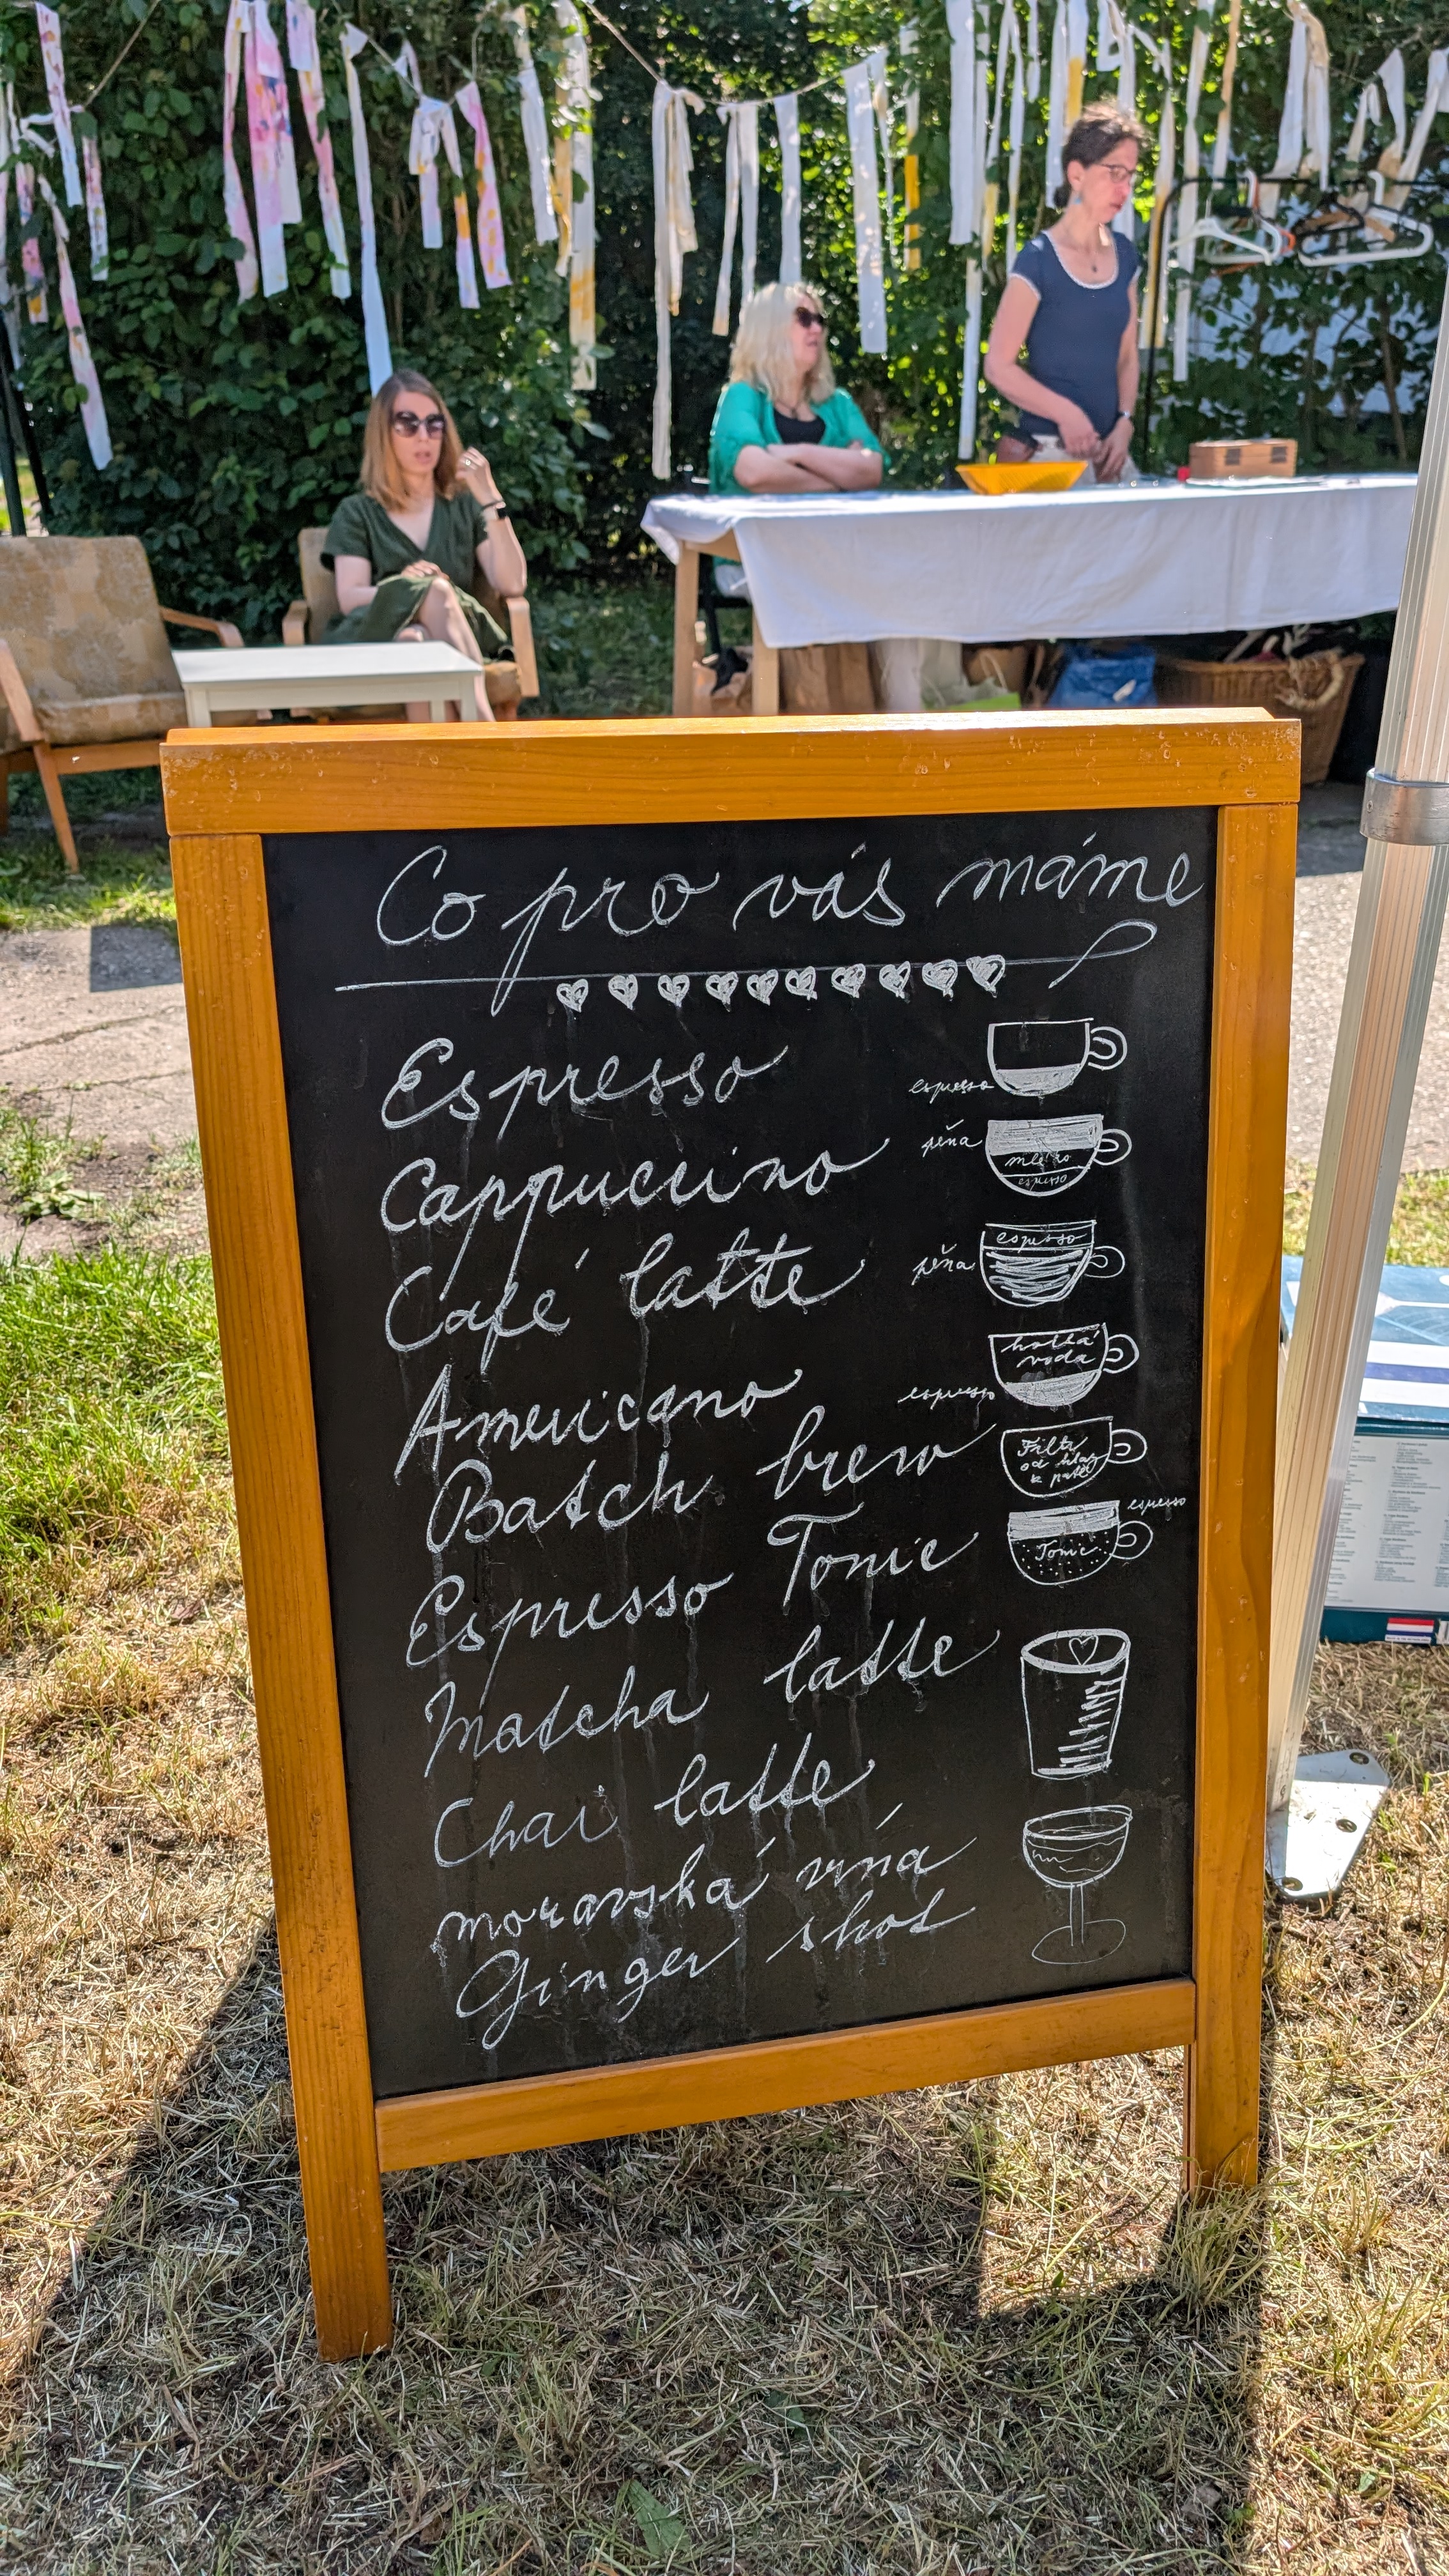 Co pro vás máme
Espresso
espresso
Cappuccino
pěna
mléko
espresso
Café latte
espresso
pěna
Americano
horká
voda
espresso
Batch brew
Filtr
od hlavy
k patě
Espresso Tonic
espresso
Tonic
Matcha latte
Chai latte
moravská vína
Ginger shot